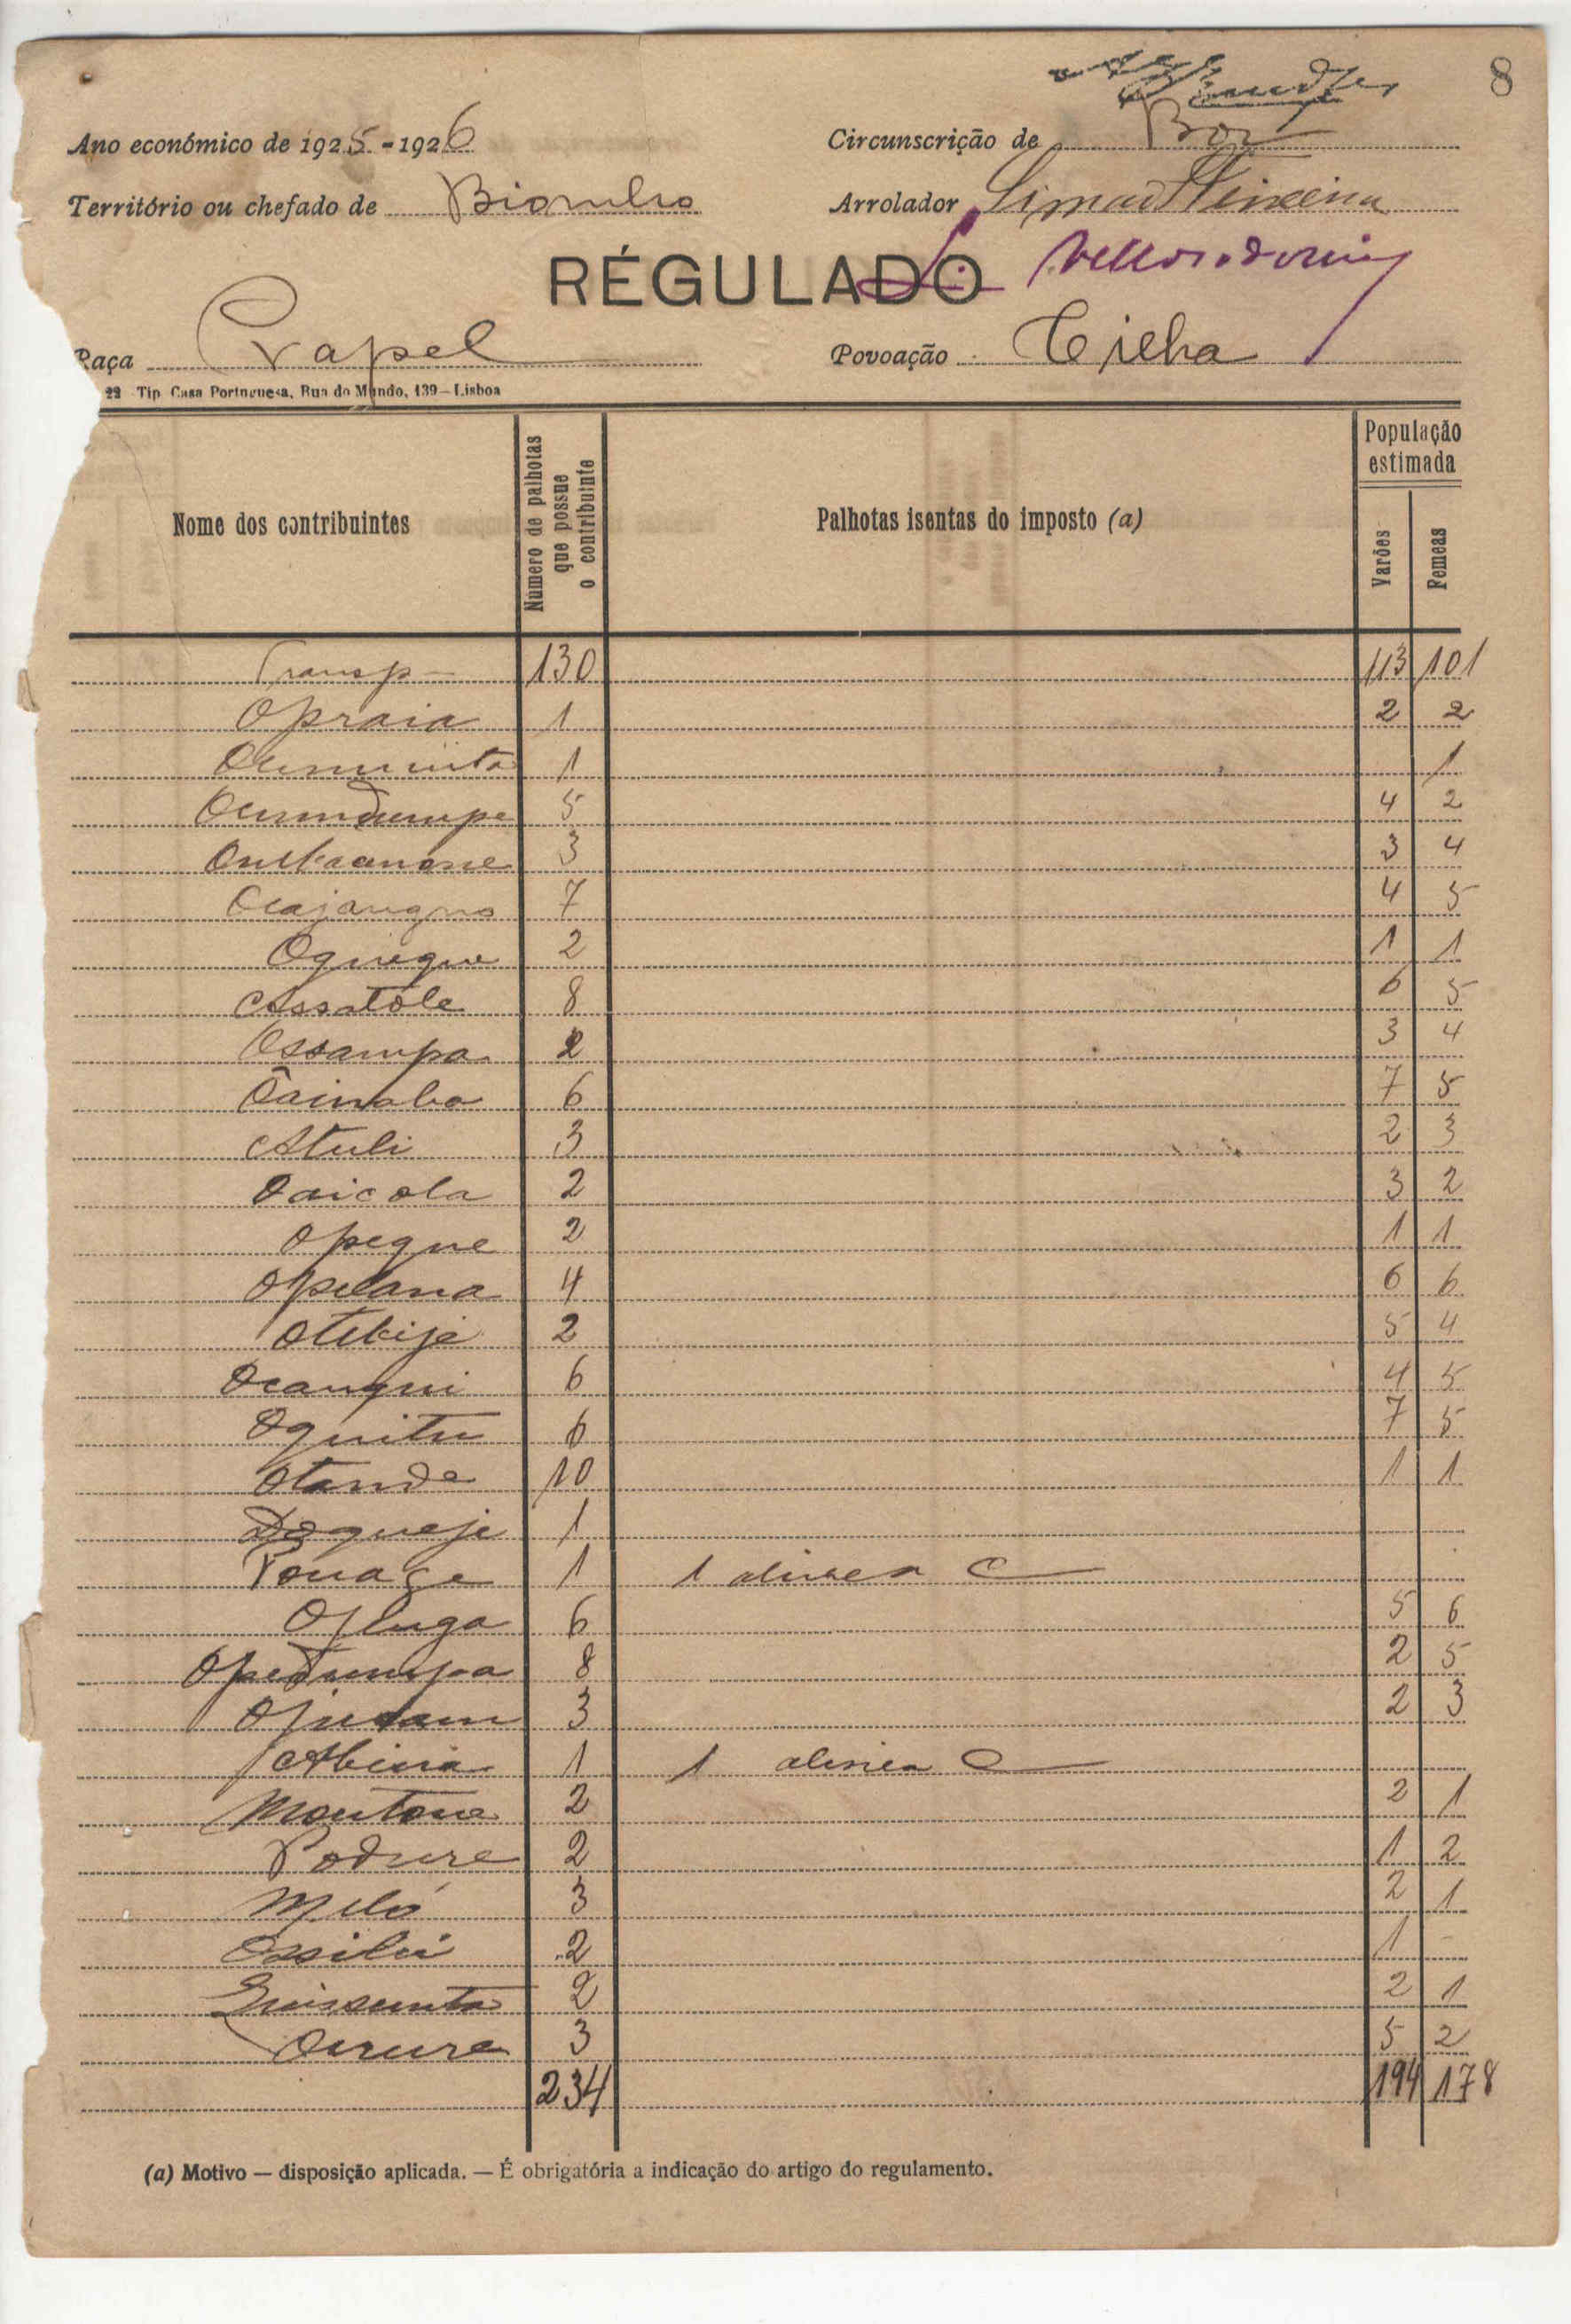 8
Ano económico de 1925-1926
Circunscrição de Bor
Território ou chefado de Biombo
Arrolador Simão Teixeira
RÉGULADO
Raça Papel
Povoação Cilha
22 Tip Casa Portuguesa, Rua do Mundo, 139—Lisboa
Nome dos contribuintes
Numero de palhotas que possue o contribuinte
Palhotas isentas do imposto (a)
População estimada
Varões
Femeas
Transp— 130 113 101
Opraia 1 2 2
1 1
5 4 2
3 3 4
7 4 5
Oqueque 2 1 1
Assatole 8 6 5
Ossampa 2 3 4
Ôainabo 6 7 5
Atuli 3 2 3
Oaicola 2 3 2
Opeque 2 1 1
Opelana 4 6 6
Otebije 2 5 4
Ocanqui 6 4 5
Oquitu 6 7 5
Otonde 10 1 1
Doqueje 1
Pouage 1 1 alinea C
Opluga 6 5 6
8 2 5
3 2 3
1 1 alinea C
Montone 2 2 1
Podure 2 1 2
Meló 3 2 1
Ossilui 2 1 -
Quissunto 2 2 1
3 5 2
234 194 178
(a) Motivo — disposição aplicada. — É obrigatória a indicação do artigo do regulamento.